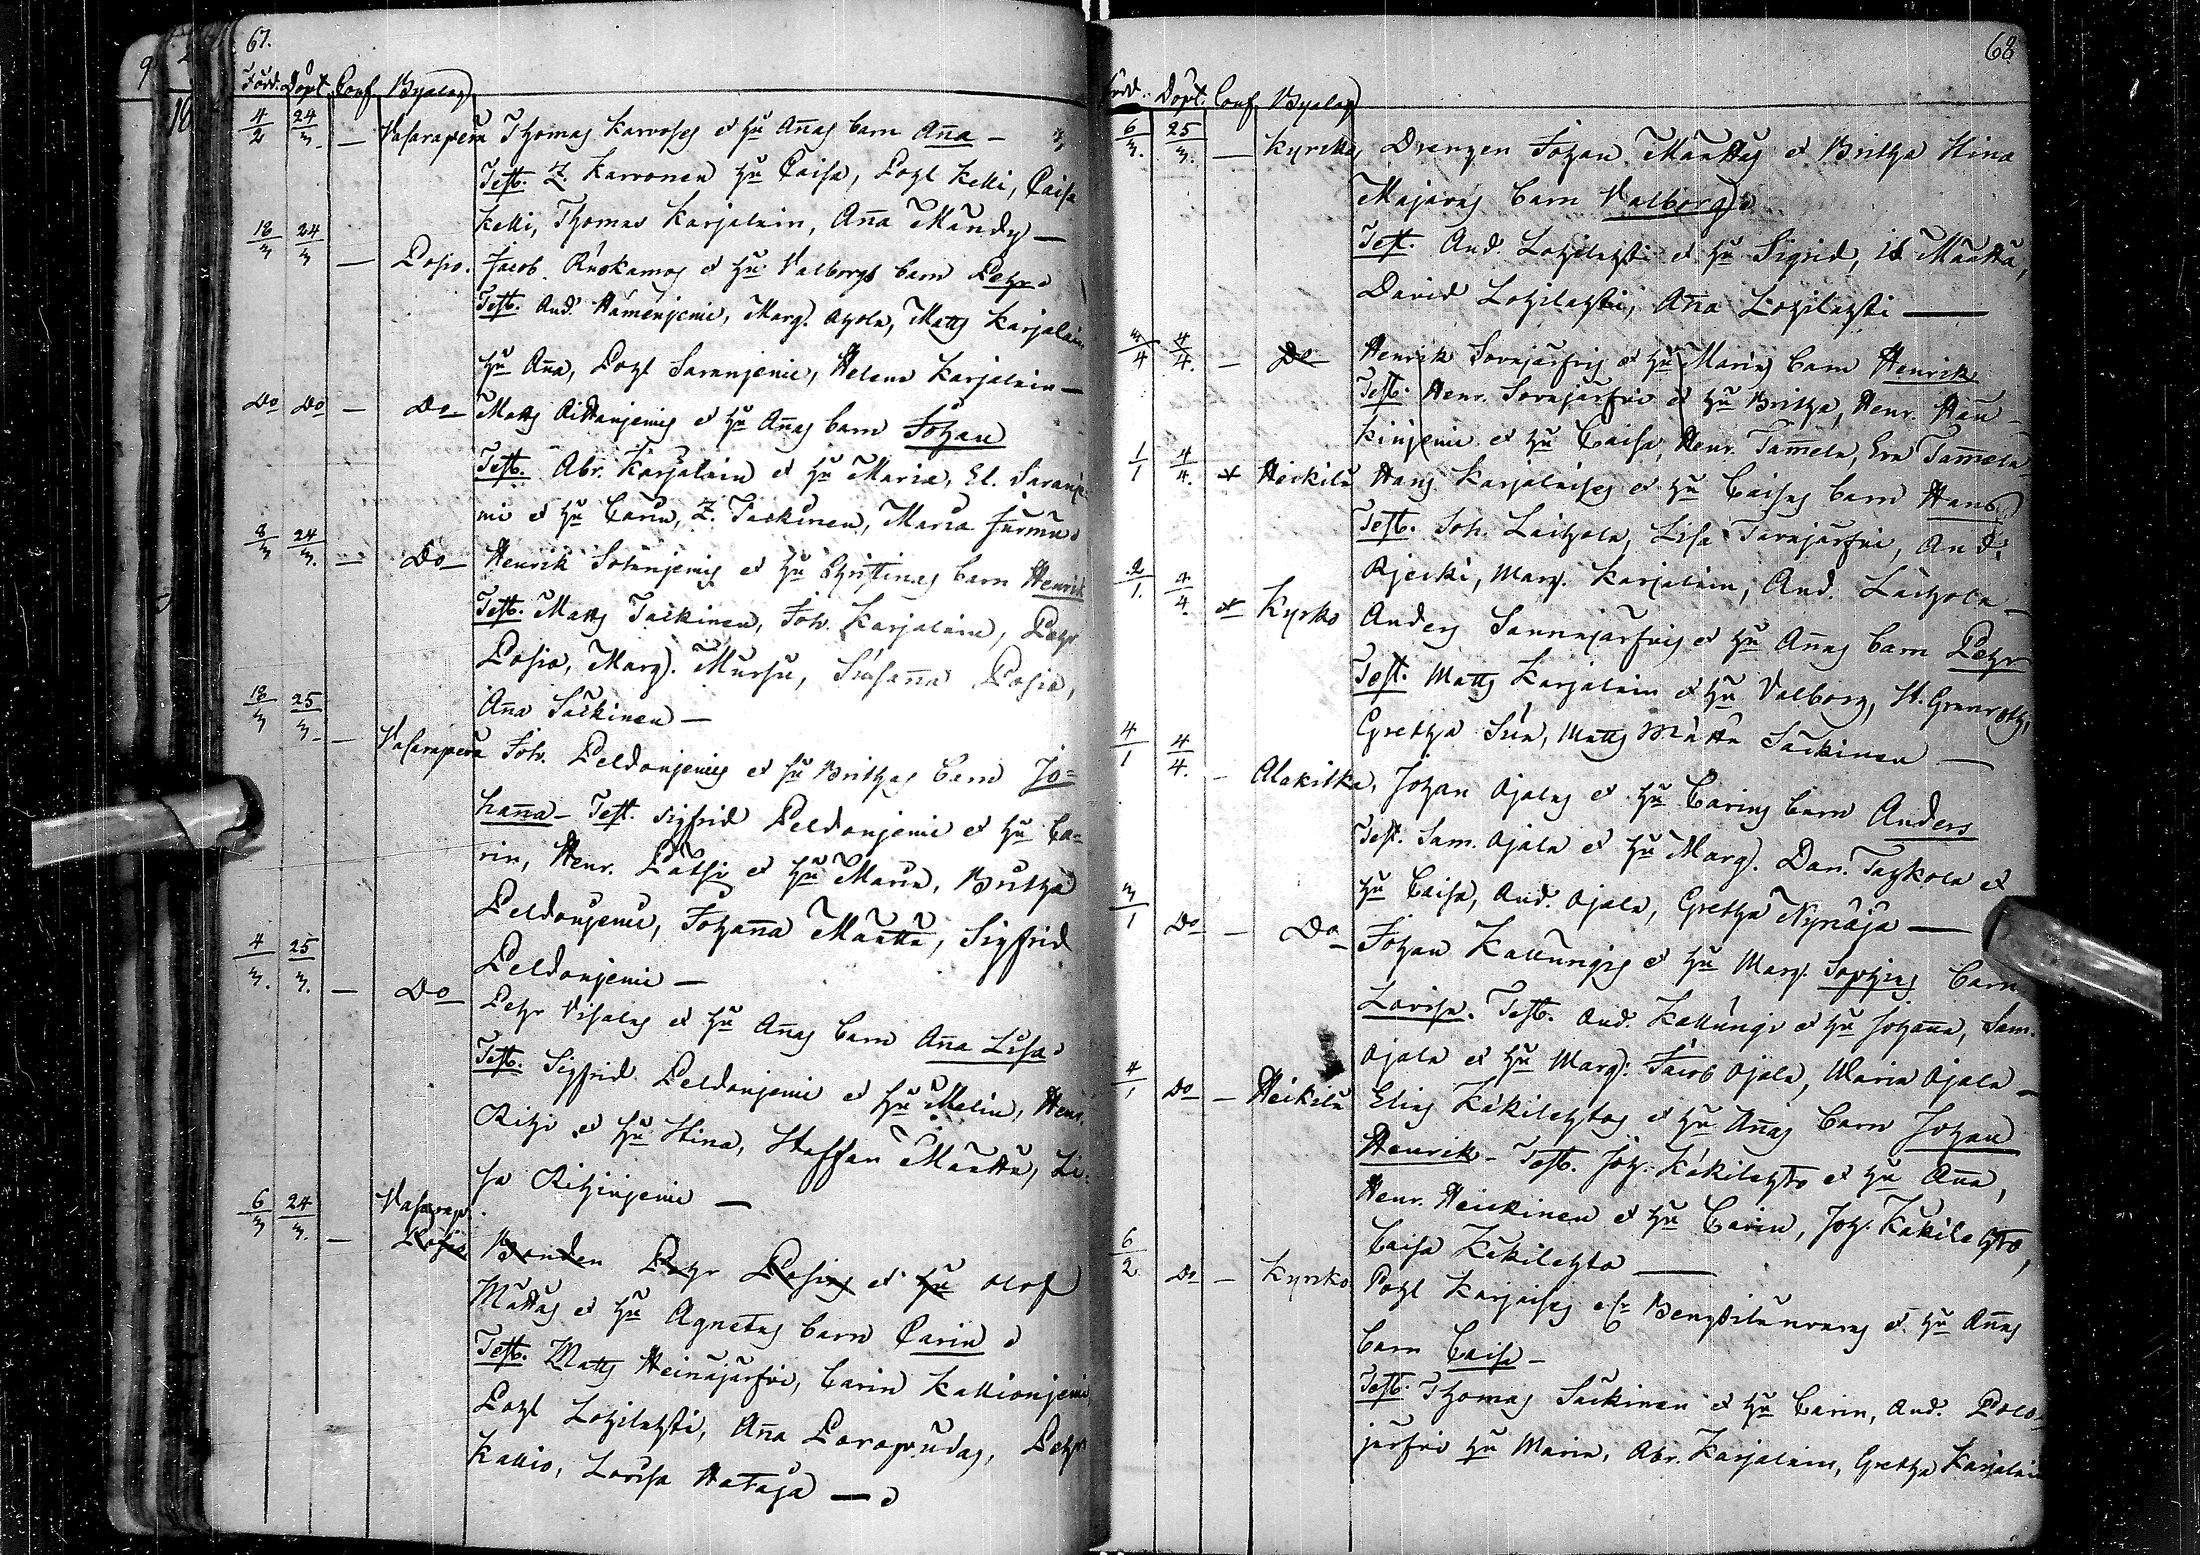 67.
Född. Döpt. Conf. Byalag
4/2 24/3. — Vasarapera Thomas Karvoses et hu Annas barn Anna —
Test. Z. Karvonen hu Caisa, Pohl Kelli, Caisa
Kelli, Thomas Karjalain, Anna Mandy —
18/3 24/3 — Posio. Jacob Ruokamos et hu Valborgs barn Pehr
Test. And. Hämenjemi, Marg. Ahola, Matts Karjalain
hu Anna, Pohl Saranjemi, Helena Karjalain —
Do Do — Do Matts Aittanjemis et hu Annas barn Johan
Test. Abr. Karjalain et hu Maria, El. Saranje-
mi et hu Carin, Z. Tackinen, Maria Jurmu
8/3 24/3. — Do Henrik Sotanjemis et hu Christinas barn Henrik
Test. Matts Tackinen, Joh. Karjalain, Pehr
Posio, Marg. Mursu, Susanna Posio,
Anna Säckinen —
18/3 25/3. — Vasarapera Joh. Peldonjemis et hu Brithas barn Jo=
hanna — Test. Sigfrid Peldonjemi et hu Ca=
rin, Henr. Pätsi et hu Maria, Britha
Peldonjemi, Johanna Määttä, Sigfrid
Peldonjemi —
4/3. 25/3. — Do Pehr Visalas et hu Annas barn Anna Lisa
Test. Sigfrid Peldonjemi et hu Malin, Henr.
Rihi et hu Stina, Staffan Määttä, Li-
sa Rihinjemi —
6/3 24/3. — Vasarap. Posio
Bonden Pehr Posios et hu Olof
Mättas et hu Agnetas barn Carin
Test. Matts Heinäjärfvi, Carin Kallionjemi
Pohl Lohilahti, Anna Poropudas, Pehr
Kallio, Lovisa Hataja —
68
Född. Döpt. Conf. Byalag
6/3. 25/3. — Kyrko Drengen Johan Mänttas et Britha Stina
Majavas barn Valborg
Test. And. Lohilahti et hu Sigrid, Is Määttä,
David Lohilahti, Anna Lohilahti —
3/4 4/4. — Do Henrik Sovajärfvis et hu Marias barn Henrik
Test. Henr. Sovajärfvi et hu Britha, Henr. Hau-
kinjemi et hu Caisa, Henr. Tammela, Eva Tammela
1/1 4/4. Heikilä Hans Karjalaises et hu Caisas barn Hans
Test. Joh. Läihola, Lisa Torajärfvi, And.
Ojecki, Marg. Karjalain, And. Läihola —
2/1. 4/4. Kyrko Anders Saunajärfvis et hu Annas barn Pehr
Test. Matts Karjalain et hu Valborg, H. Granroth,
Gretha Sira, Matts Mätta Säckinen —
4/1 4/4. — Alakitka, Johan Ojalas et hu Carins barn Anders
Test. Sam. Ojala et hu Marg. Dan. Tahkola et
hu Caisa, And. Ojala, Gretha Nynäjä —
3/1 Do — Do Johan Kallungis et hu Marg. Sophias barn
Lovisa. Test. And. Kallungi et hu Johanna, Sam.
Ojala et hu Marg. Jacob Ojala, Maria Ojala —
4/1 Do — Heikilä Elias Käkilehtos et hu Annas barn Johan
Henrik — Test. Joh. Käkilehto et hu Anna,
Henr. Heickinen et hu Carin, Joh. Käkilehto,
Caisa Käkilehto —
6/2 Do — Kyrko Pohl Karjaises et hu Annas
barn Caisa —
Test. Thomas Säckinen et hu Carin, And. Polo-
järfvi hu Maria, Abr. Karjalain, Gretha Karjalain